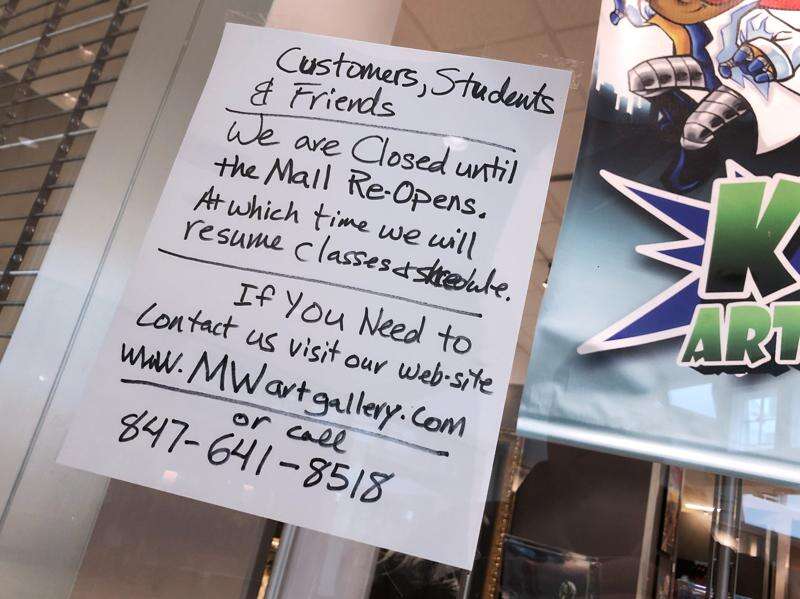 Customers, Students
& Friends
We are Closed until
the Mall Re-Opens.
At which time we will
resume classes & shedule.
If You Need to
Contact us visit our web-site
www.MWartgallery.com
or call
847-641-8518
K
ART